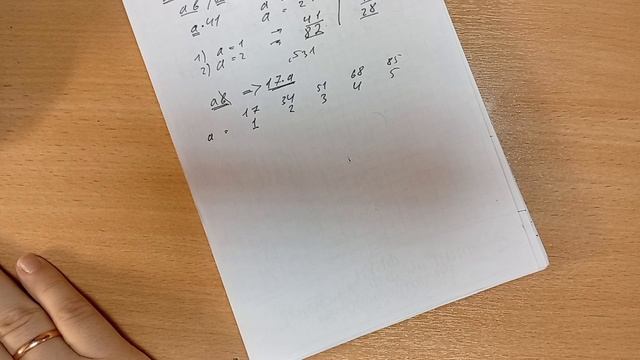 a·41
a = 2
1) a = 1 → 41
2) a = 2 → 82
28
=> 17·a
17 34 51 68 85
a = 1 2 3 4 5